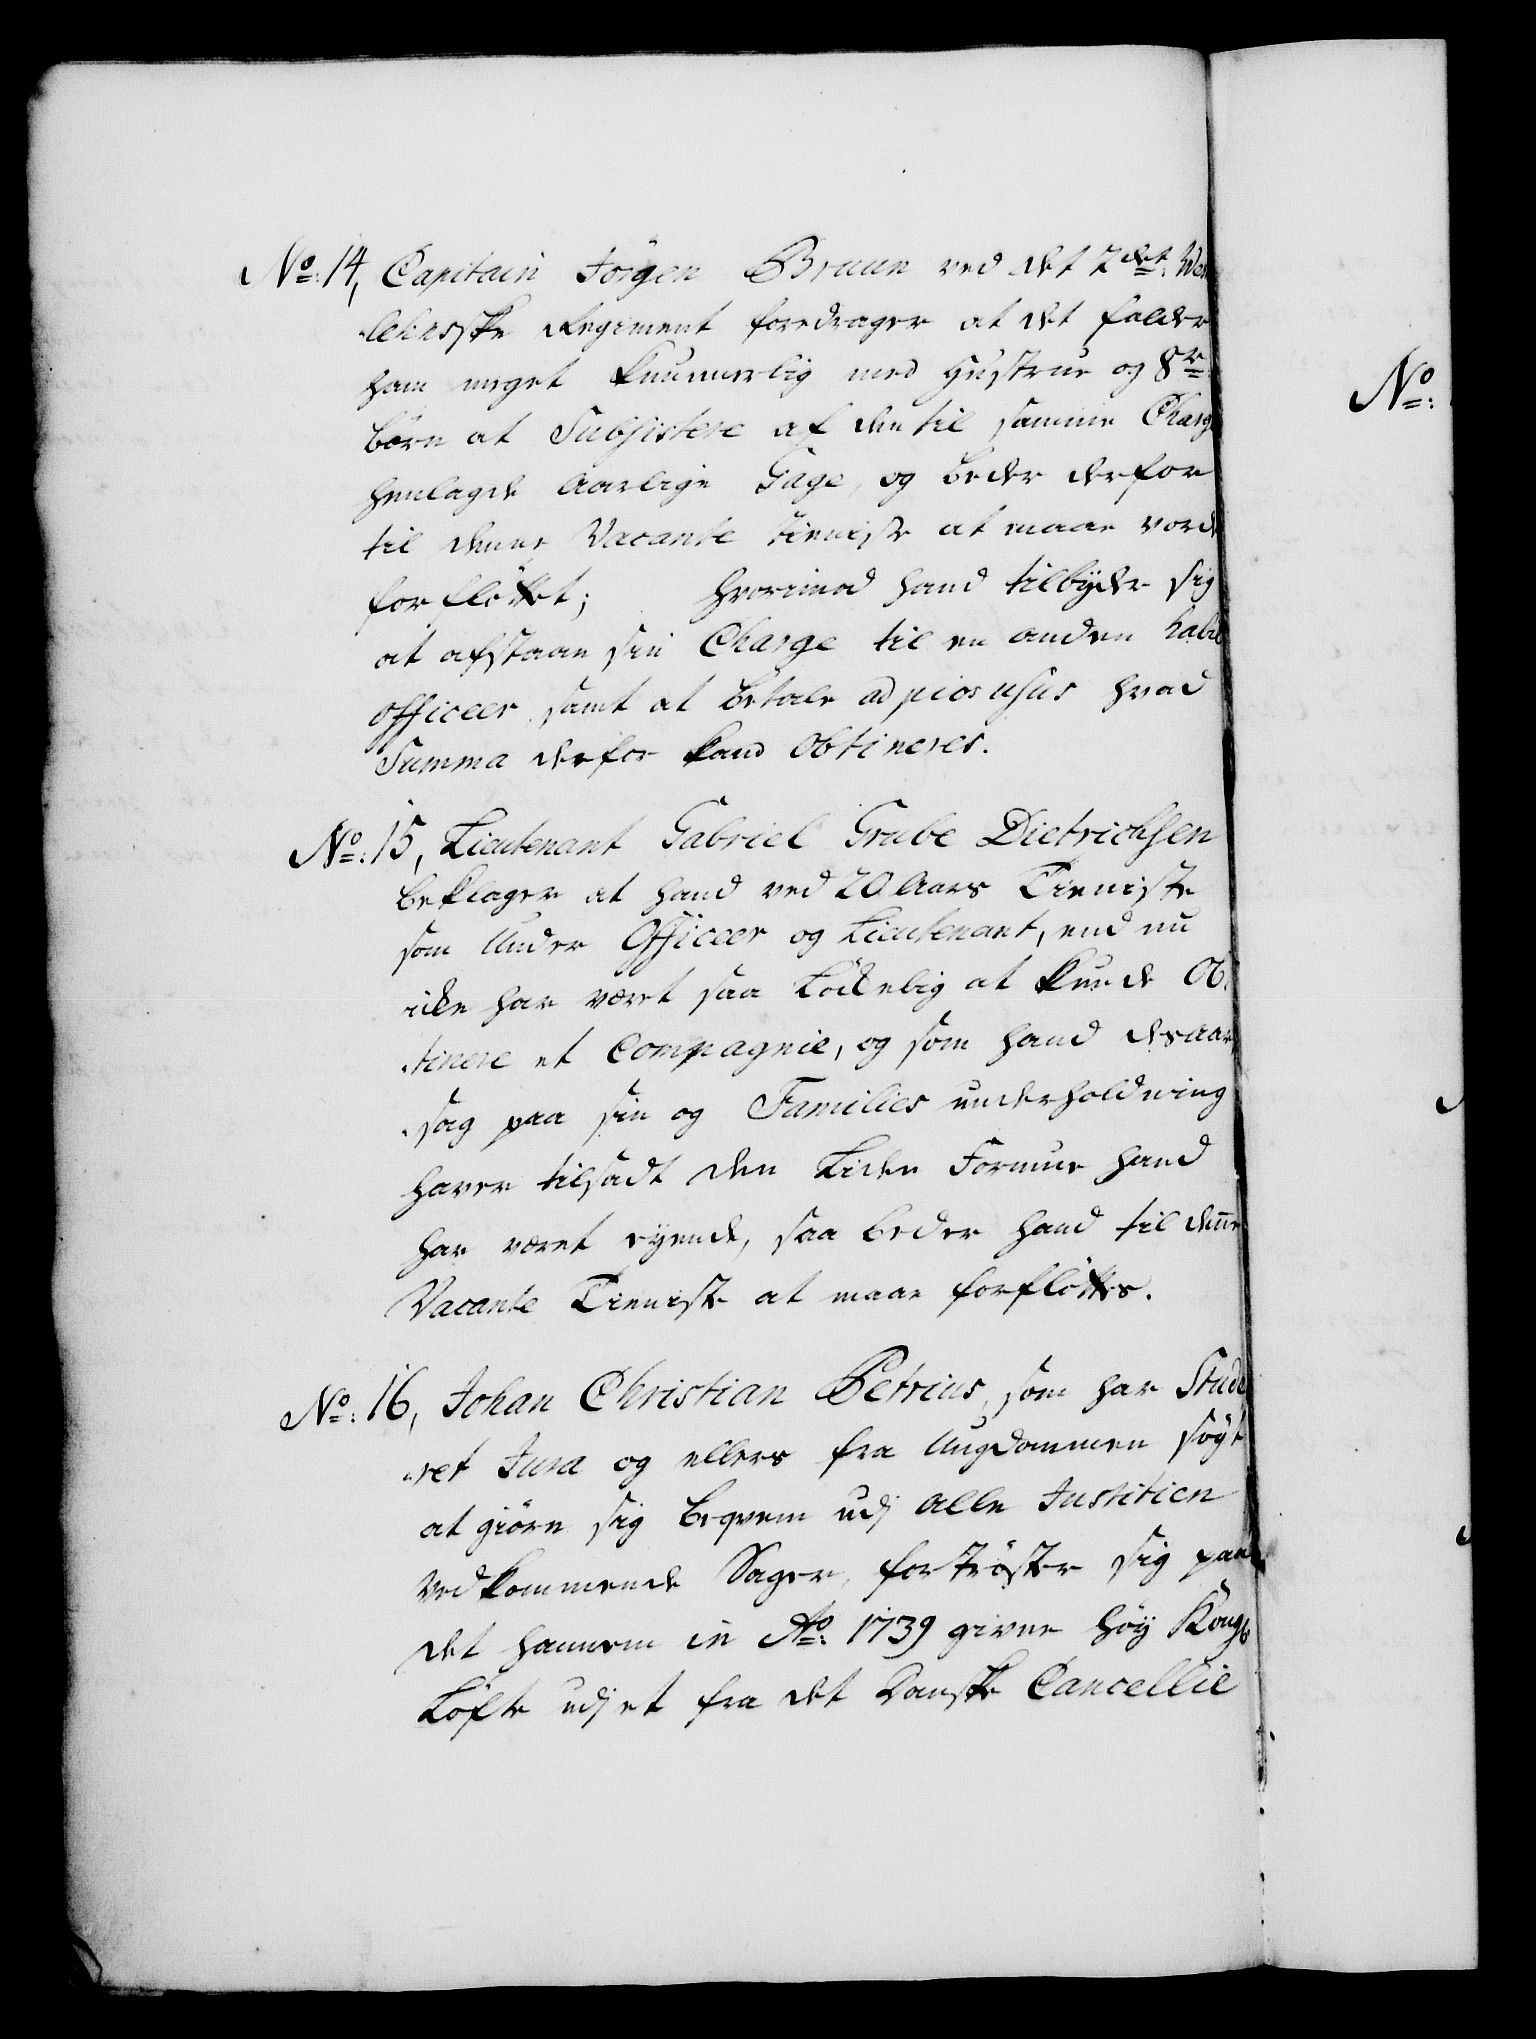 No: 14, Capitain Jörgen Bruun ved det 2det
lehnsske Regiment foredrager at det falder
ham meget kummerlig med Hustrue og 8te
börn at Subsistere af den til samme Charg
henlagde Aarlige Gage, og beder derfor
til denne Vacante tieniste at maae vord
forflöttet; hvorimod hand tilbyder sig
at afstaae sin Charge til en anden habil
Officeer samt at betale ad pios usus hvad
Summa derfor kand obtineres.
No: 15, Lieutenant Gabriel Grube Dietrichsen
beklager at hand ved 20 Aars Tieniste
som Under Officeer og Lieutenant, end nu
icke har været saa Löckelig at kunde Ob
tinere et Compagnie, og som hand desaar
sag paa sin og Families underholdning
haver tilsadt den Liden Formue hand
har været eyende, saa beder hand til denne
Vacante Tieniste at maae forflöttes.
No: 16, Johan Christian Petrius, som har Stude
ret Jura og ellers fra Ungdommen söyt
at giöre sig beqvem udj alle Justitien
vedkommende Sager, fortröster sig paa
det hannem in Ao: 1739 givne höy Kongl
Löfte udj et fra det Danske Cancellie
No: